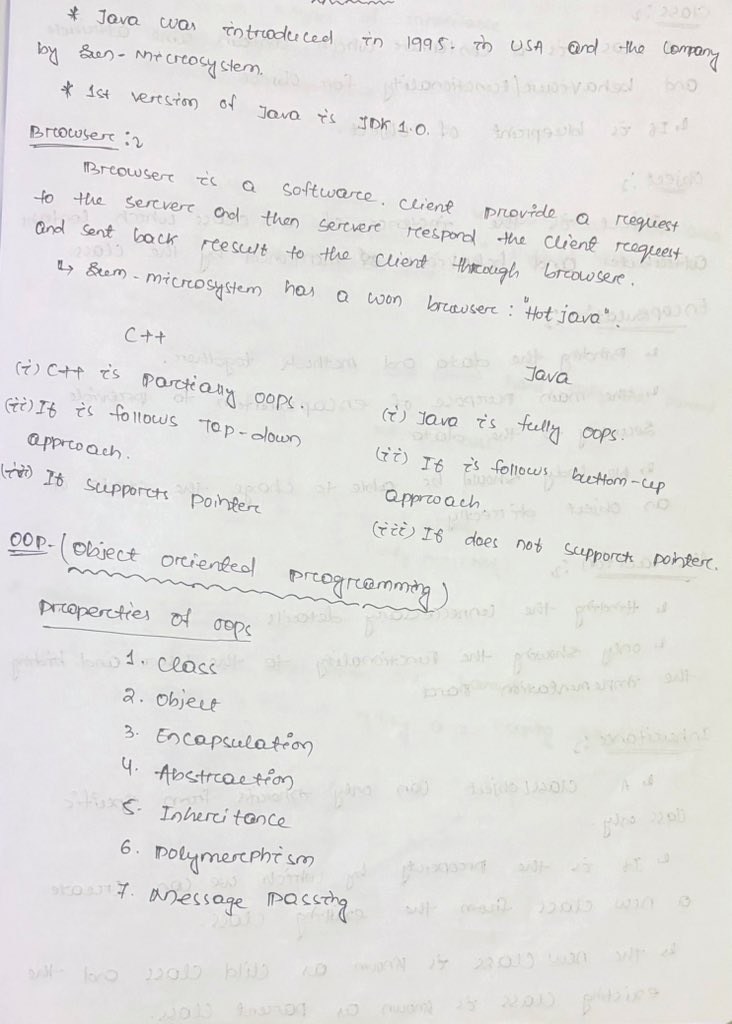 * Java was introduced in 1995. in USA and the company
by Sun-microsystem.
* 1st version of Java is JDK 1.0.
Browser :~
Browser is a software. Client provide a request
to the server and then server respond the client request
and sent back result to the client through browser.
↳ Sun-microsystem has a won browser : "Hot java".
C++
(i) C++ is Partially oops.
(ii) It is follows Top-down
approach.
(iii) It supports pointer
Java
(i) Java is fully oops.
(ii) It is follows bottom-up
approach.
(iii) It does not supports pointer.
OOP- (Object oriented programming)
Properties of oops
1. Class
2. Object
3. Encapsulation
4. Abstraction
5. Inheritance
6. Polymorphism
7. Message Passing